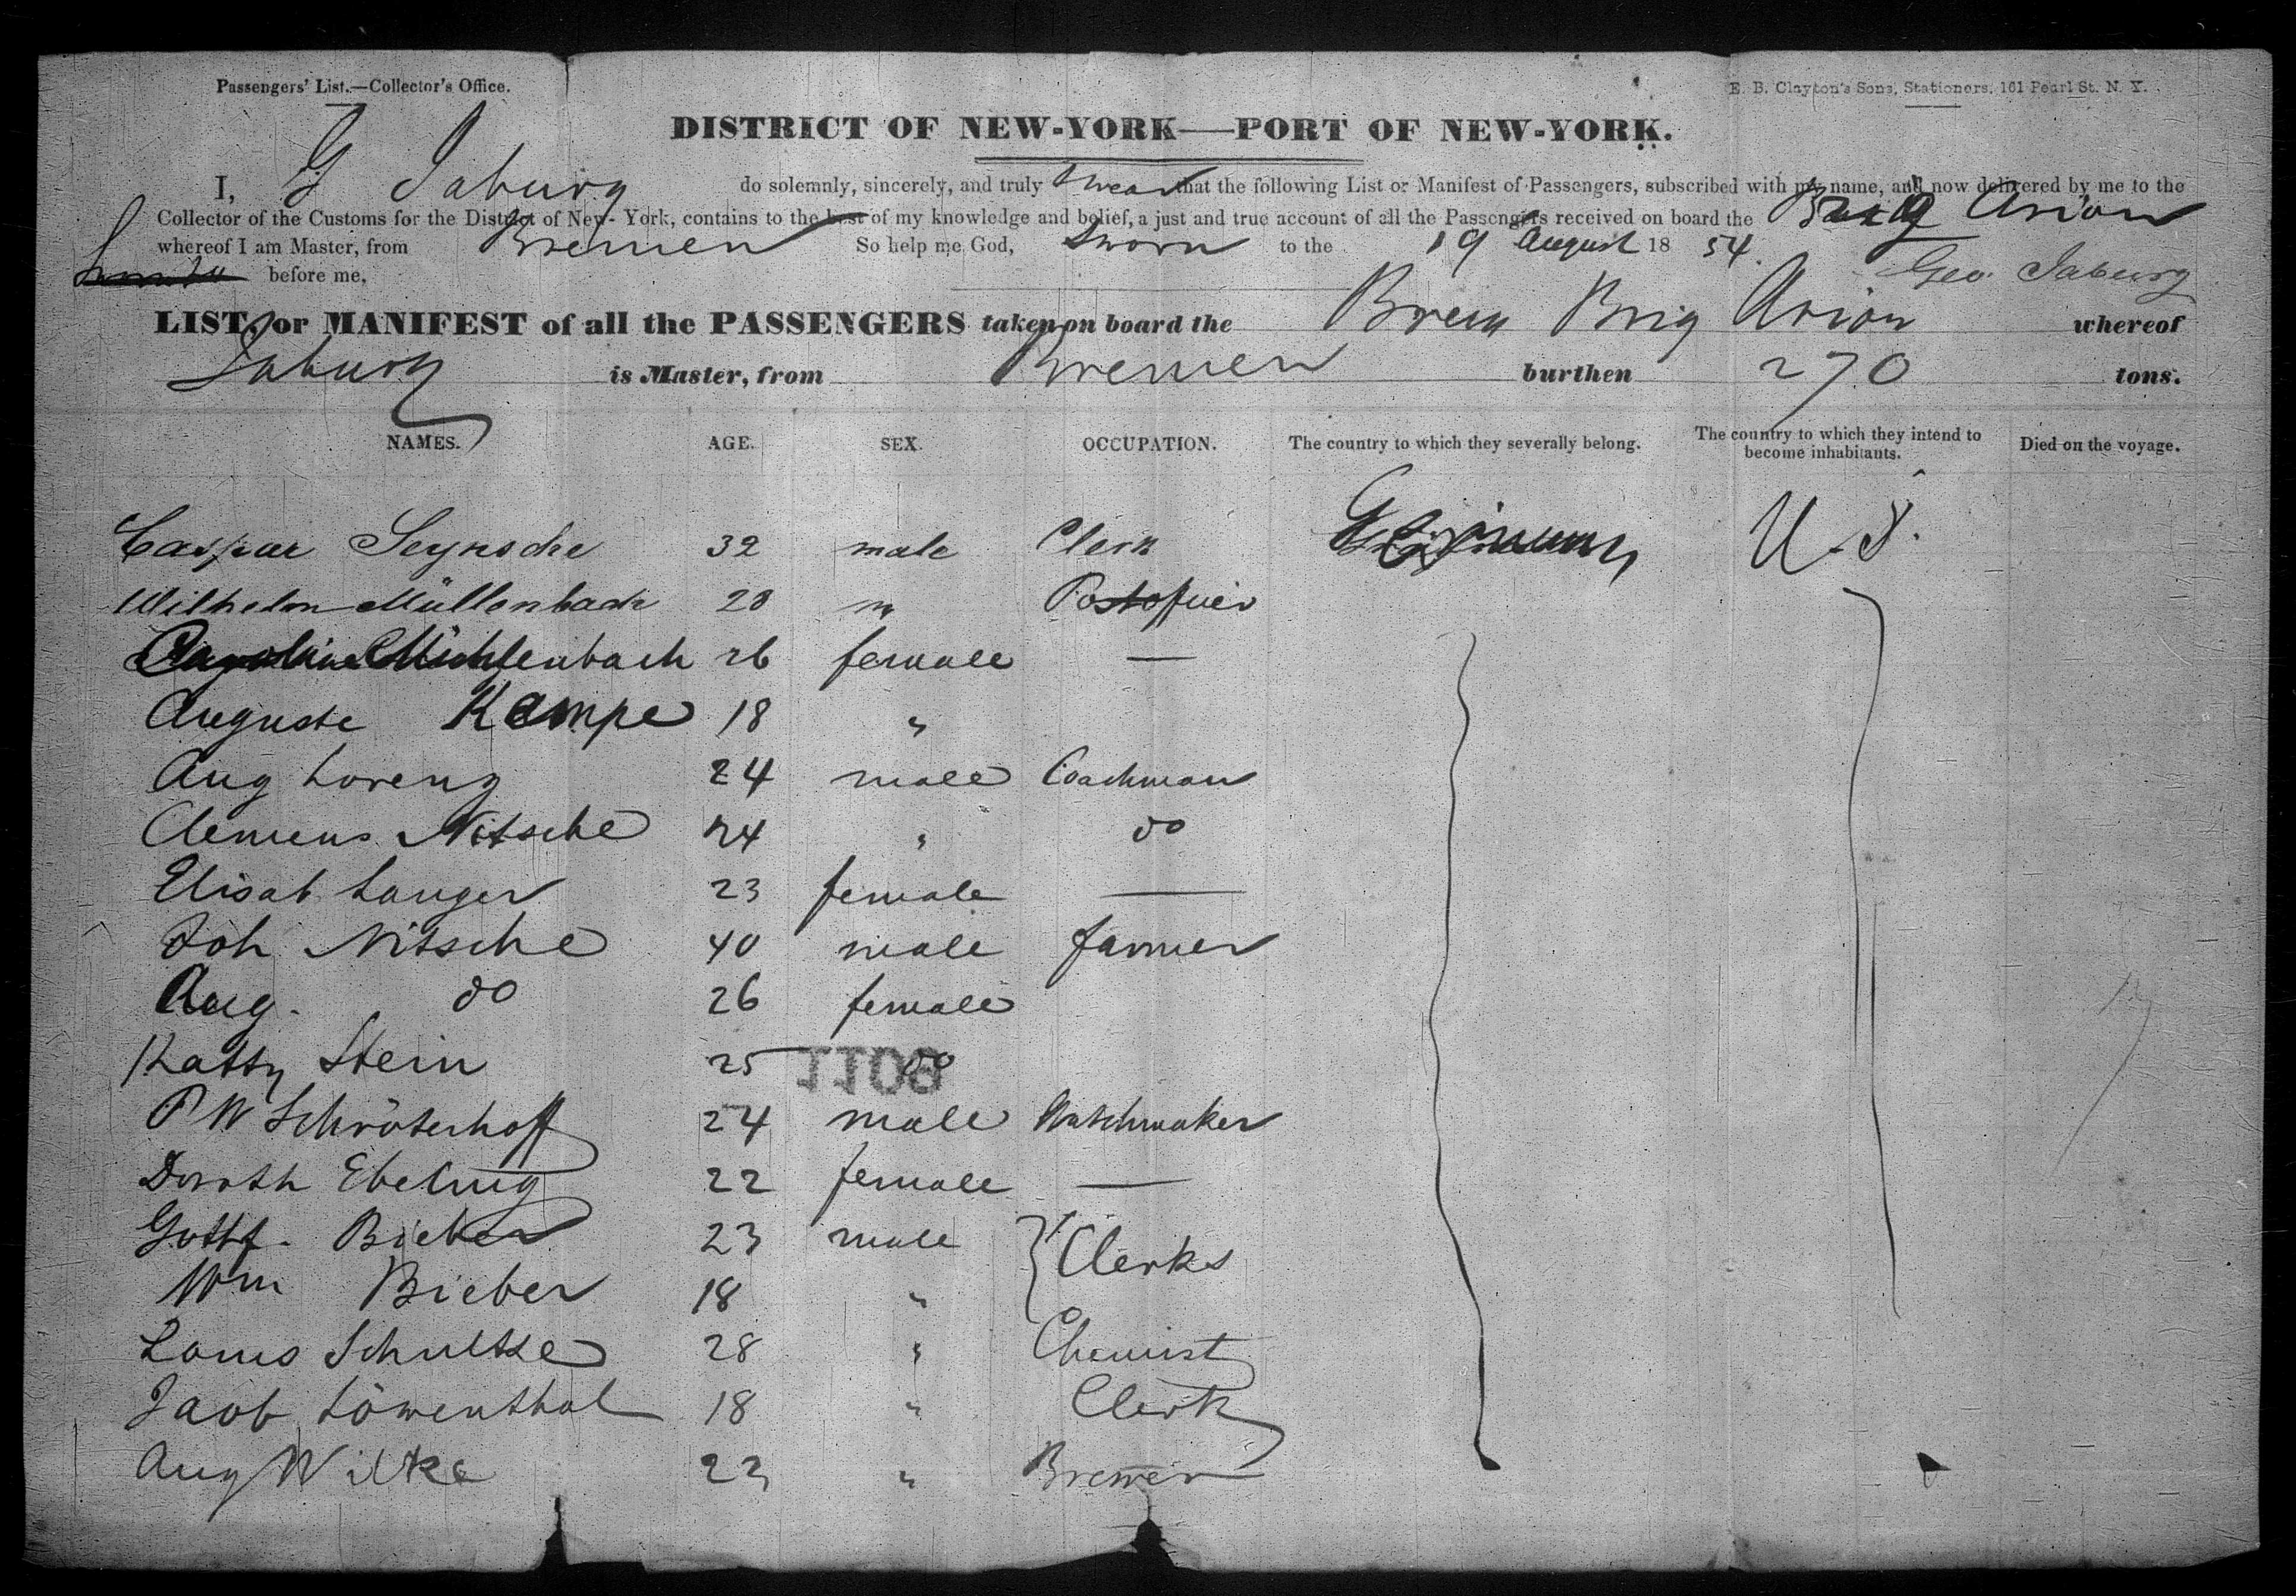 Passengers' List.—Collector's Office.
E. B. Clayton's Sons, Stationers, 161 Pearl St. N. Y.
DISTRICT OF NEW-YORK—PORT OF NEW-YORK.
I, G Jaburg do solemnly, sincerely, and truly swear that the following List or Manifest of Passengers, subscribed with my name, and now delivered by me to the
Collector of the Customs for the District of New-York, contains to the best of my knowledge and belief, a just and true account of all the Passengers received on board the Brig Arion
whereof I am Master, from Bremen So help me God, Sworn to the 19 August 18 54.
before me, Geo. Jaburg
LIST, or MANIFEST of all the PASSENGERS taken on board the Brem Brig Arion whereof
Jaburg is Master, from Bremen burthen 270 tons.
NAMES. AGE. SEX. OCCUPATION. The country to which they severally belong. The country to which they intend to become inhabitants. Died on the voyage.
Caspar 32 male Clerk Germany U.S.
Wilhelm Müllenbach 28 "
Caroline Mühlenbach 26 female —
Auguste Kempe 18 "
Aug Lorenz 24 male Coachman
Clemens Nitsche 24 " do
Elisab Langer 23 female —
Joh Nitsche 40 male farmer
Aug. do 26 female
Katty Stein 25 do
1108
P W Schröterhoff 24 male Watchmaker
Doroth Ebeling 22 female —
Gottf. Bieber 23 male } Clerks
Wm Bieber 18 "
Louis Schultze 28 " Chemist
Jacob Löwenthal 18 " Clerk
Aug Wilke 22 " Brewer